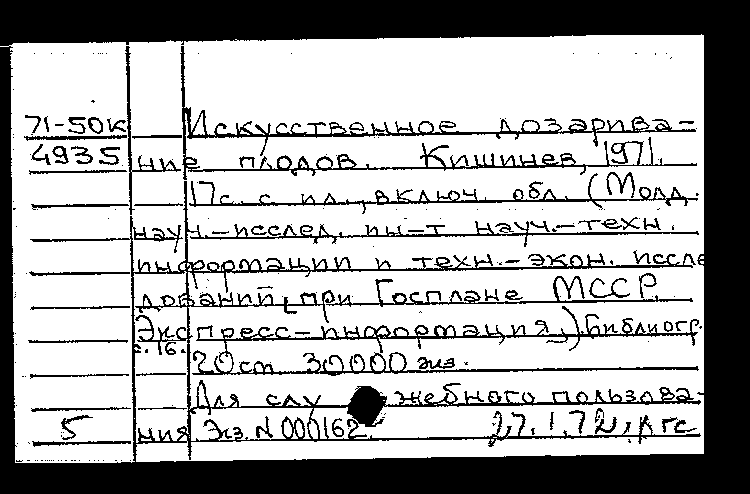 71-50к Искусственное дозарива=
4935 ние плодов. Кишинев, 1971.
17с. с ил., включ. обл. (Молд.
науч.-исслед. ин-т науч.-техн.
информации и техн.-экон. иссле
дований при Госплане МССР.
Экспресс-информация.) Библиогр.
с. 16.
20см. 30000 экз.
Для служебного пользова-
5 ния. Экз. N 000162. 27.1.72,